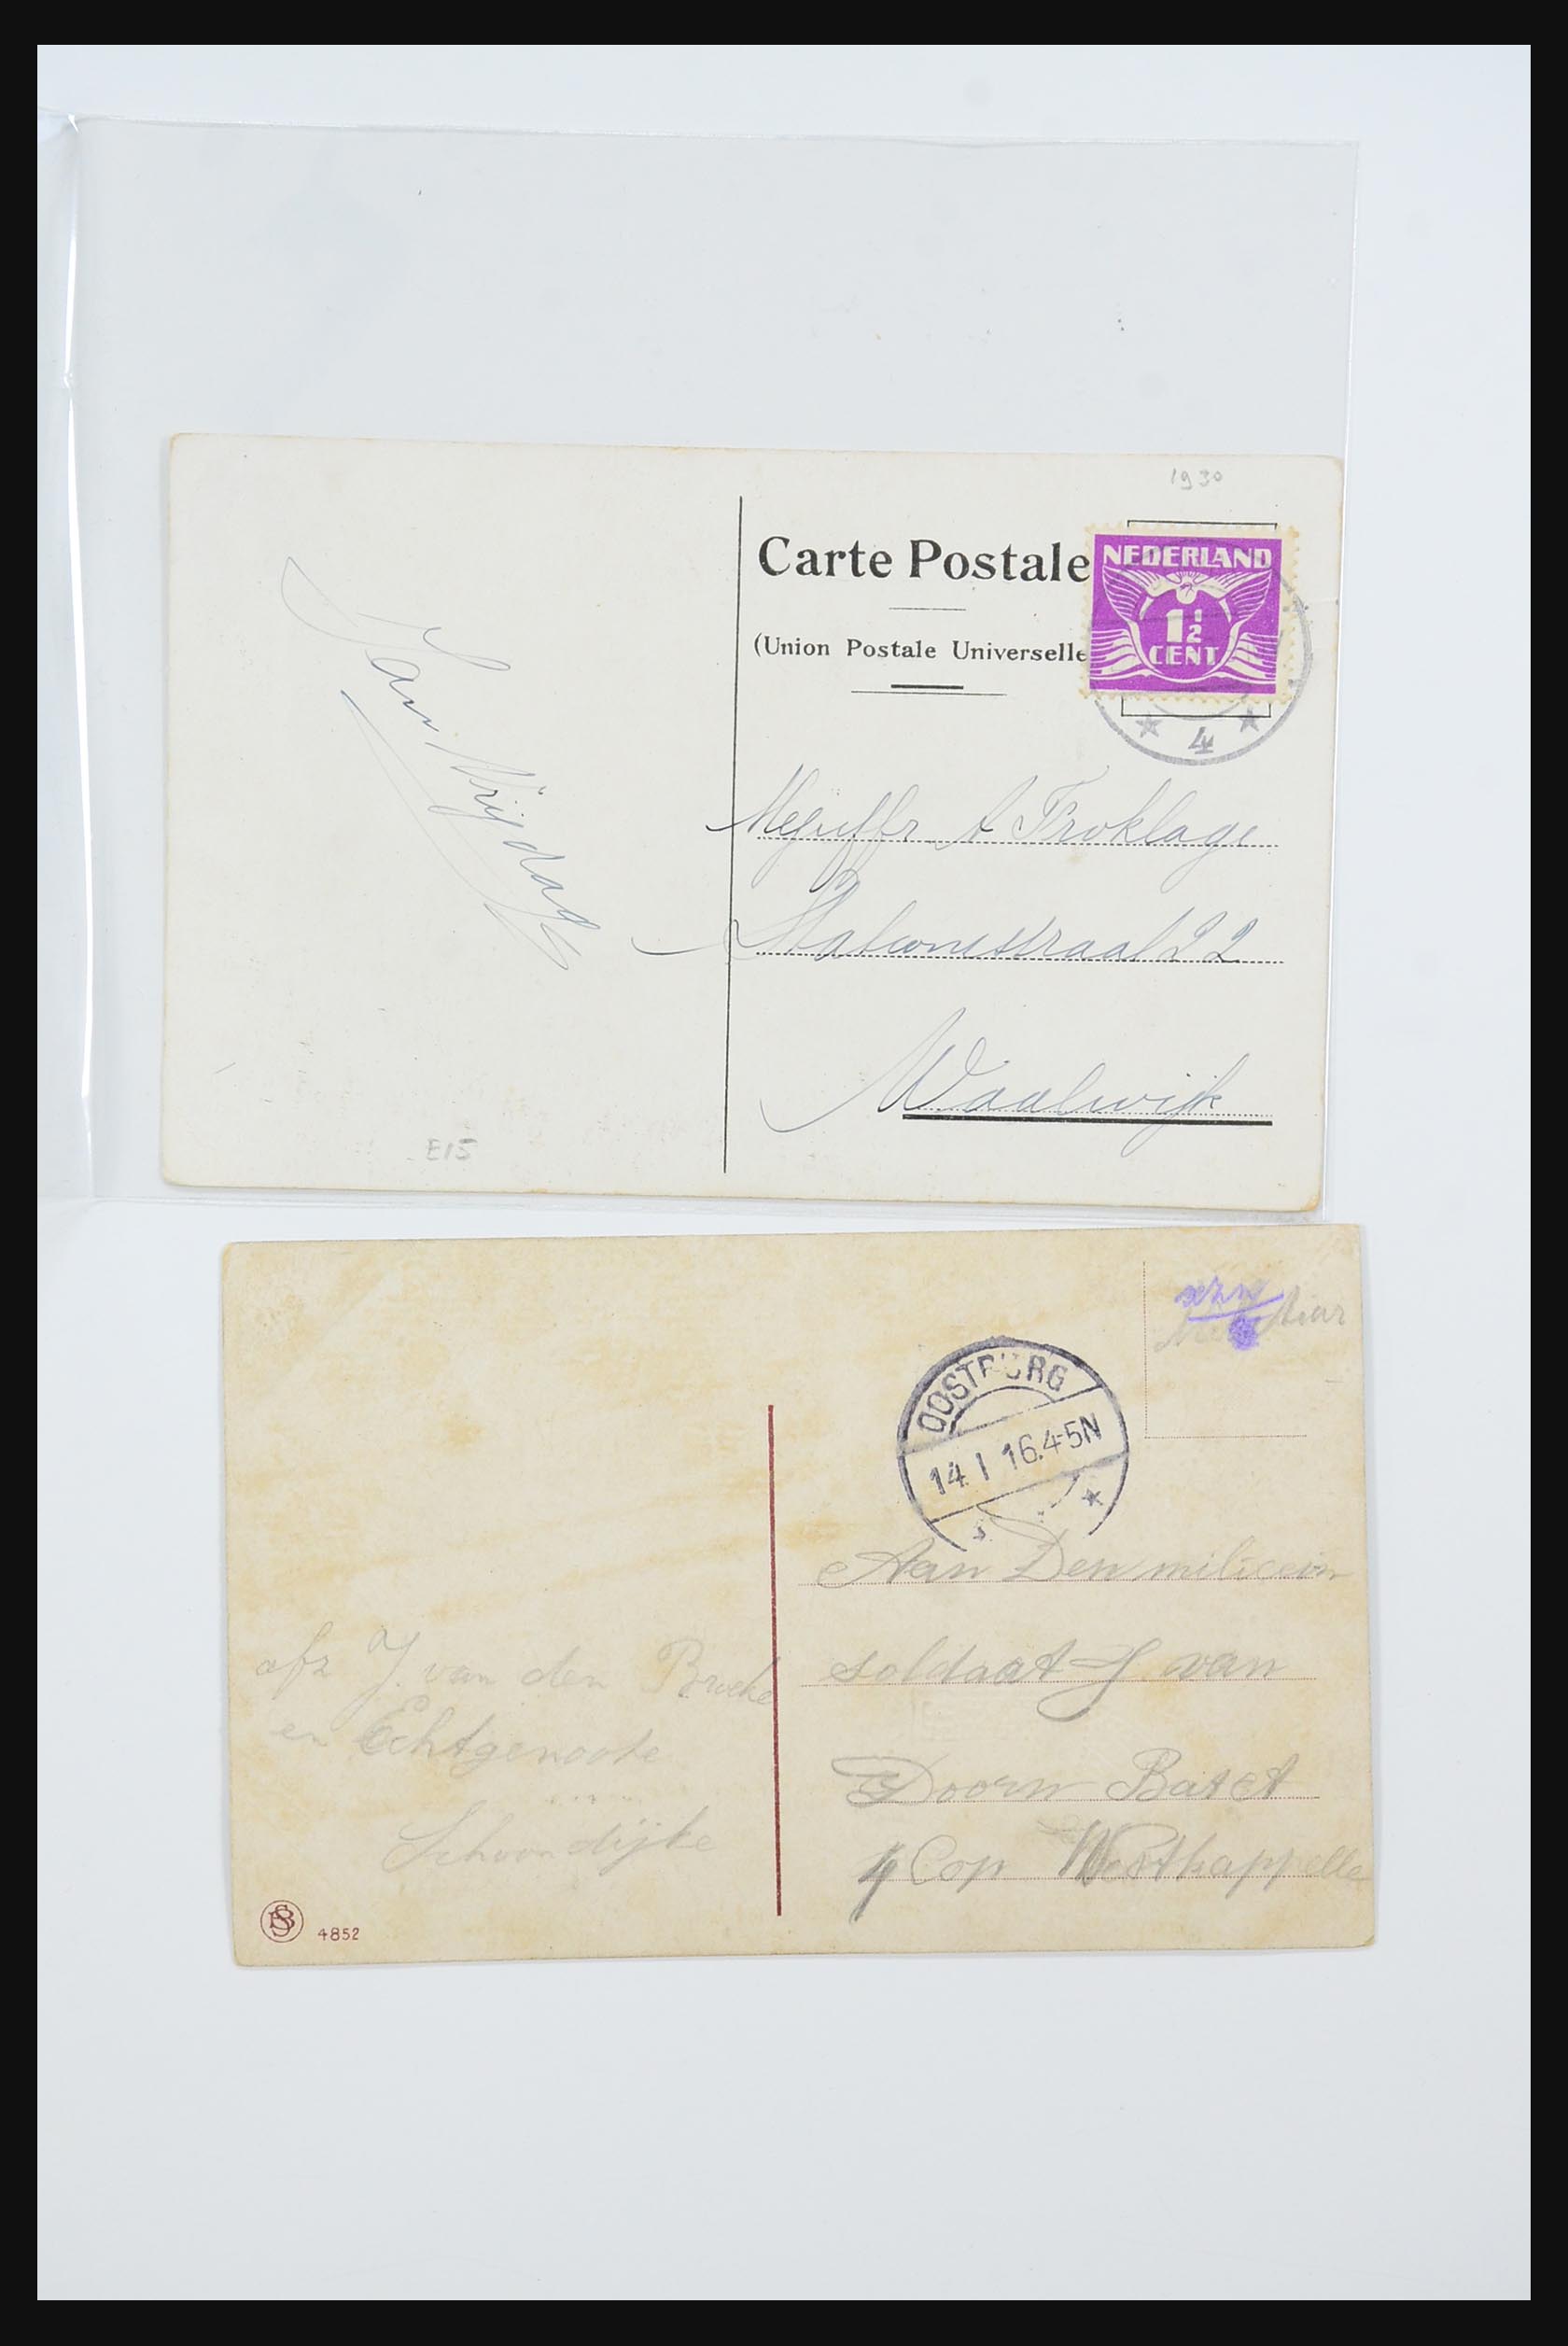 1930
Carte Postale
NEDERLAND
1½
CENT
(Union Postale Universelle
4
Jan Vrijdag
Mejuffr A Froklage
Stationsstraat 22
Waalwijk
E15
OOSTBURG
14. 1 16.4-5N
Aan Den milicein
soldaat J van
Doorn Bat et
4 Cop Westkappelle
afz J. van den Broeke
en Echtgenoote
Schoondijke
4852